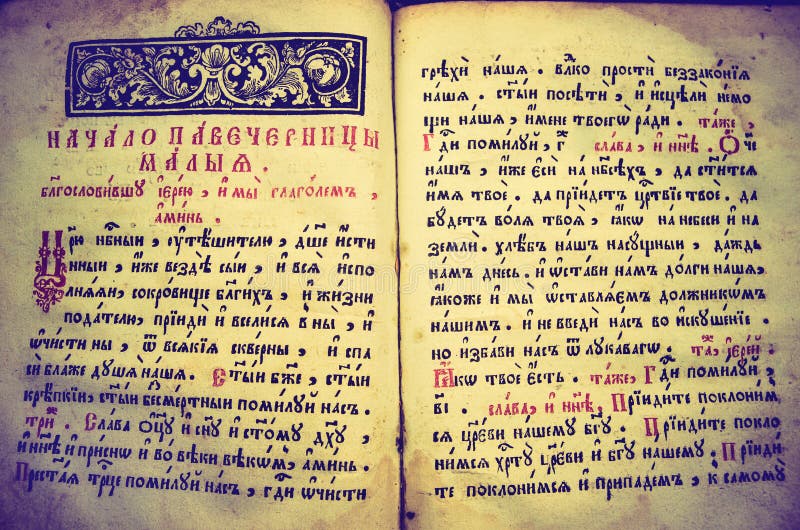 НАЧА́ЛО ПАВЕЧЕРНИЦЫ
МА́ЛЫѦ .
Бл҃гослови́вшу їере́ю , и҆ мы̀ глаго́лемъ ,
а҆ми́нь .
Цр҃ю нбⷭ҇ныи , ᲂу҆тѣ́шителю , дш҃е и҆́сти
нныи , и҆́же вездѣ̀ сы́и , и҆ всѧ̀ и҆спо
лнѧ́ѧи , сокро́вище бл҃ги́хъ , и҆ жи́зни
пода́телю , прїидѝ и҆ всели́сѧ в ны̀ , и҆
ѡ҆чи́сти ны , ѿ всѧ́кїѧ скве́рны , и҆ спа
сѝ бл҃же дꙋ́шѧ на́шѧ . Ст҃ы́и бж҃е , ст҃ы́и
крѣ́пкїи , ст҃ы́и бесме́ртныи поми́лꙋи на́съ .
три́ . Сла́ва ѻ҆ц҃ꙋ̀ и҆ сн҃ꙋ и҆ ст҃о́мꙋ дх҃ꙋ ,
и҆ нн҃ѣ и҆ при́снѡ и҆ во вѣ́ки вѣкѡ́мъ , а҆ми́нь .
Прест҃а́ѧ трⷪ҇це поми́лꙋи на́съ , гдⷭ҇и ѡ҆чи́сти
грѣхѝ на́шѧ . влⷣко простѝ беззако́нїѧ
на́шѧ . ст҃ы́и посѣтѝ , и҆ и҆сцѣлѝ не́мо
щи на́шѧ , и҆́мене твоегѡ̀ ра́ди . та́же ,
Гдⷭ҇и поми́лꙋй , г҃ сла́ва , и҆ нн҃ѣ . Ѻ҆́ч҃е
на́шъ , и҆́же є҆сѝ на нбⷭ҇ѣхъ , да ст҃и́тсѧ
и҆́мѧ твоѐ . да прїи́детъ црⷭ҇твїе твоѐ . да
бꙋ́детъ во́лѧ твоѧ̀ , ꙗ҆́кѡ на небесѝ и҆ на
землѝ . хлѣ́бъ на́шъ насꙋ́щныи , да́ждь
на́мъ дне́сь . и҆ ѡ҆ста́ви на́мъ до́лги на́шѧ ,
ꙗ҆́коже и҆ мы̀ ѡ҆ставлѧ́емъ должникѡ́мъ
на́шимъ . и҆ не введѝ на́съ во и҆скꙋше́нїе .
но и҆зба́ви на́съ ѿ лꙋка́вагѡ . та́, їере́й .
Ꙗ҆́кѡ твоѐ є҆́сть . та́же , Гдⷭ҇и поми́лꙋй ,
в҃і . сла́ва , и҆ нн҃ѣ , Прїиди́те поклони́м
сѧ цр҃е́ви на́шемꙋ бг҃ꙋ . Прїиди́те покло
ни́мсѧ хрⷭ҇тꙋ̀ цр҃е́ви и҆ бг҃ꙋ на́шемꙋ . Прїиди́
те поклони́мсѧ и҆ припаде́мъ , к самомꙋ̀